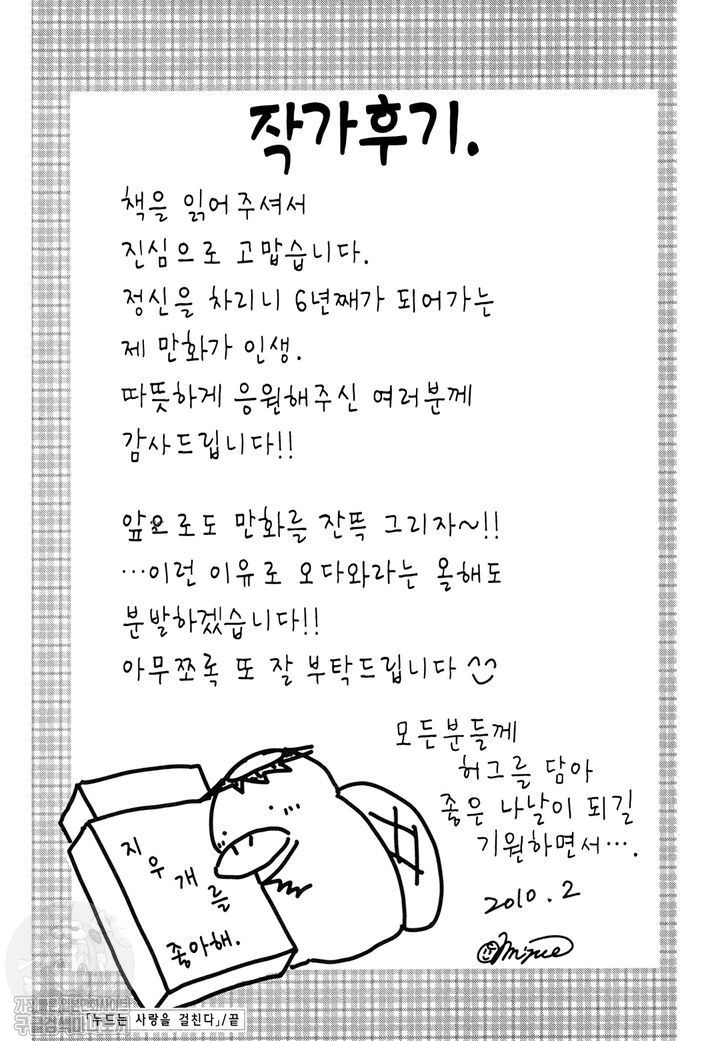 작가후기.
책을 읽어주셔서
진심으로 고맙습니다.
정신을 차리니 6년째가 되어가는
제 만화가 인생.
따뜻하게 응원해주신 여러분께
감사드립니다!!
앞으로도 만화를 잔뜩 그리자~!!
…이런 이유로 오다와라는 올해도
분발하겠습니다!!
아무쪼록 또 잘 부탁드립니다
모든분들께
허그를 담아
좋은 나날이 되길
기원하면서….
2010.2
지우개를
좋아해.
「누드는 사랑을 걸친다」/끝